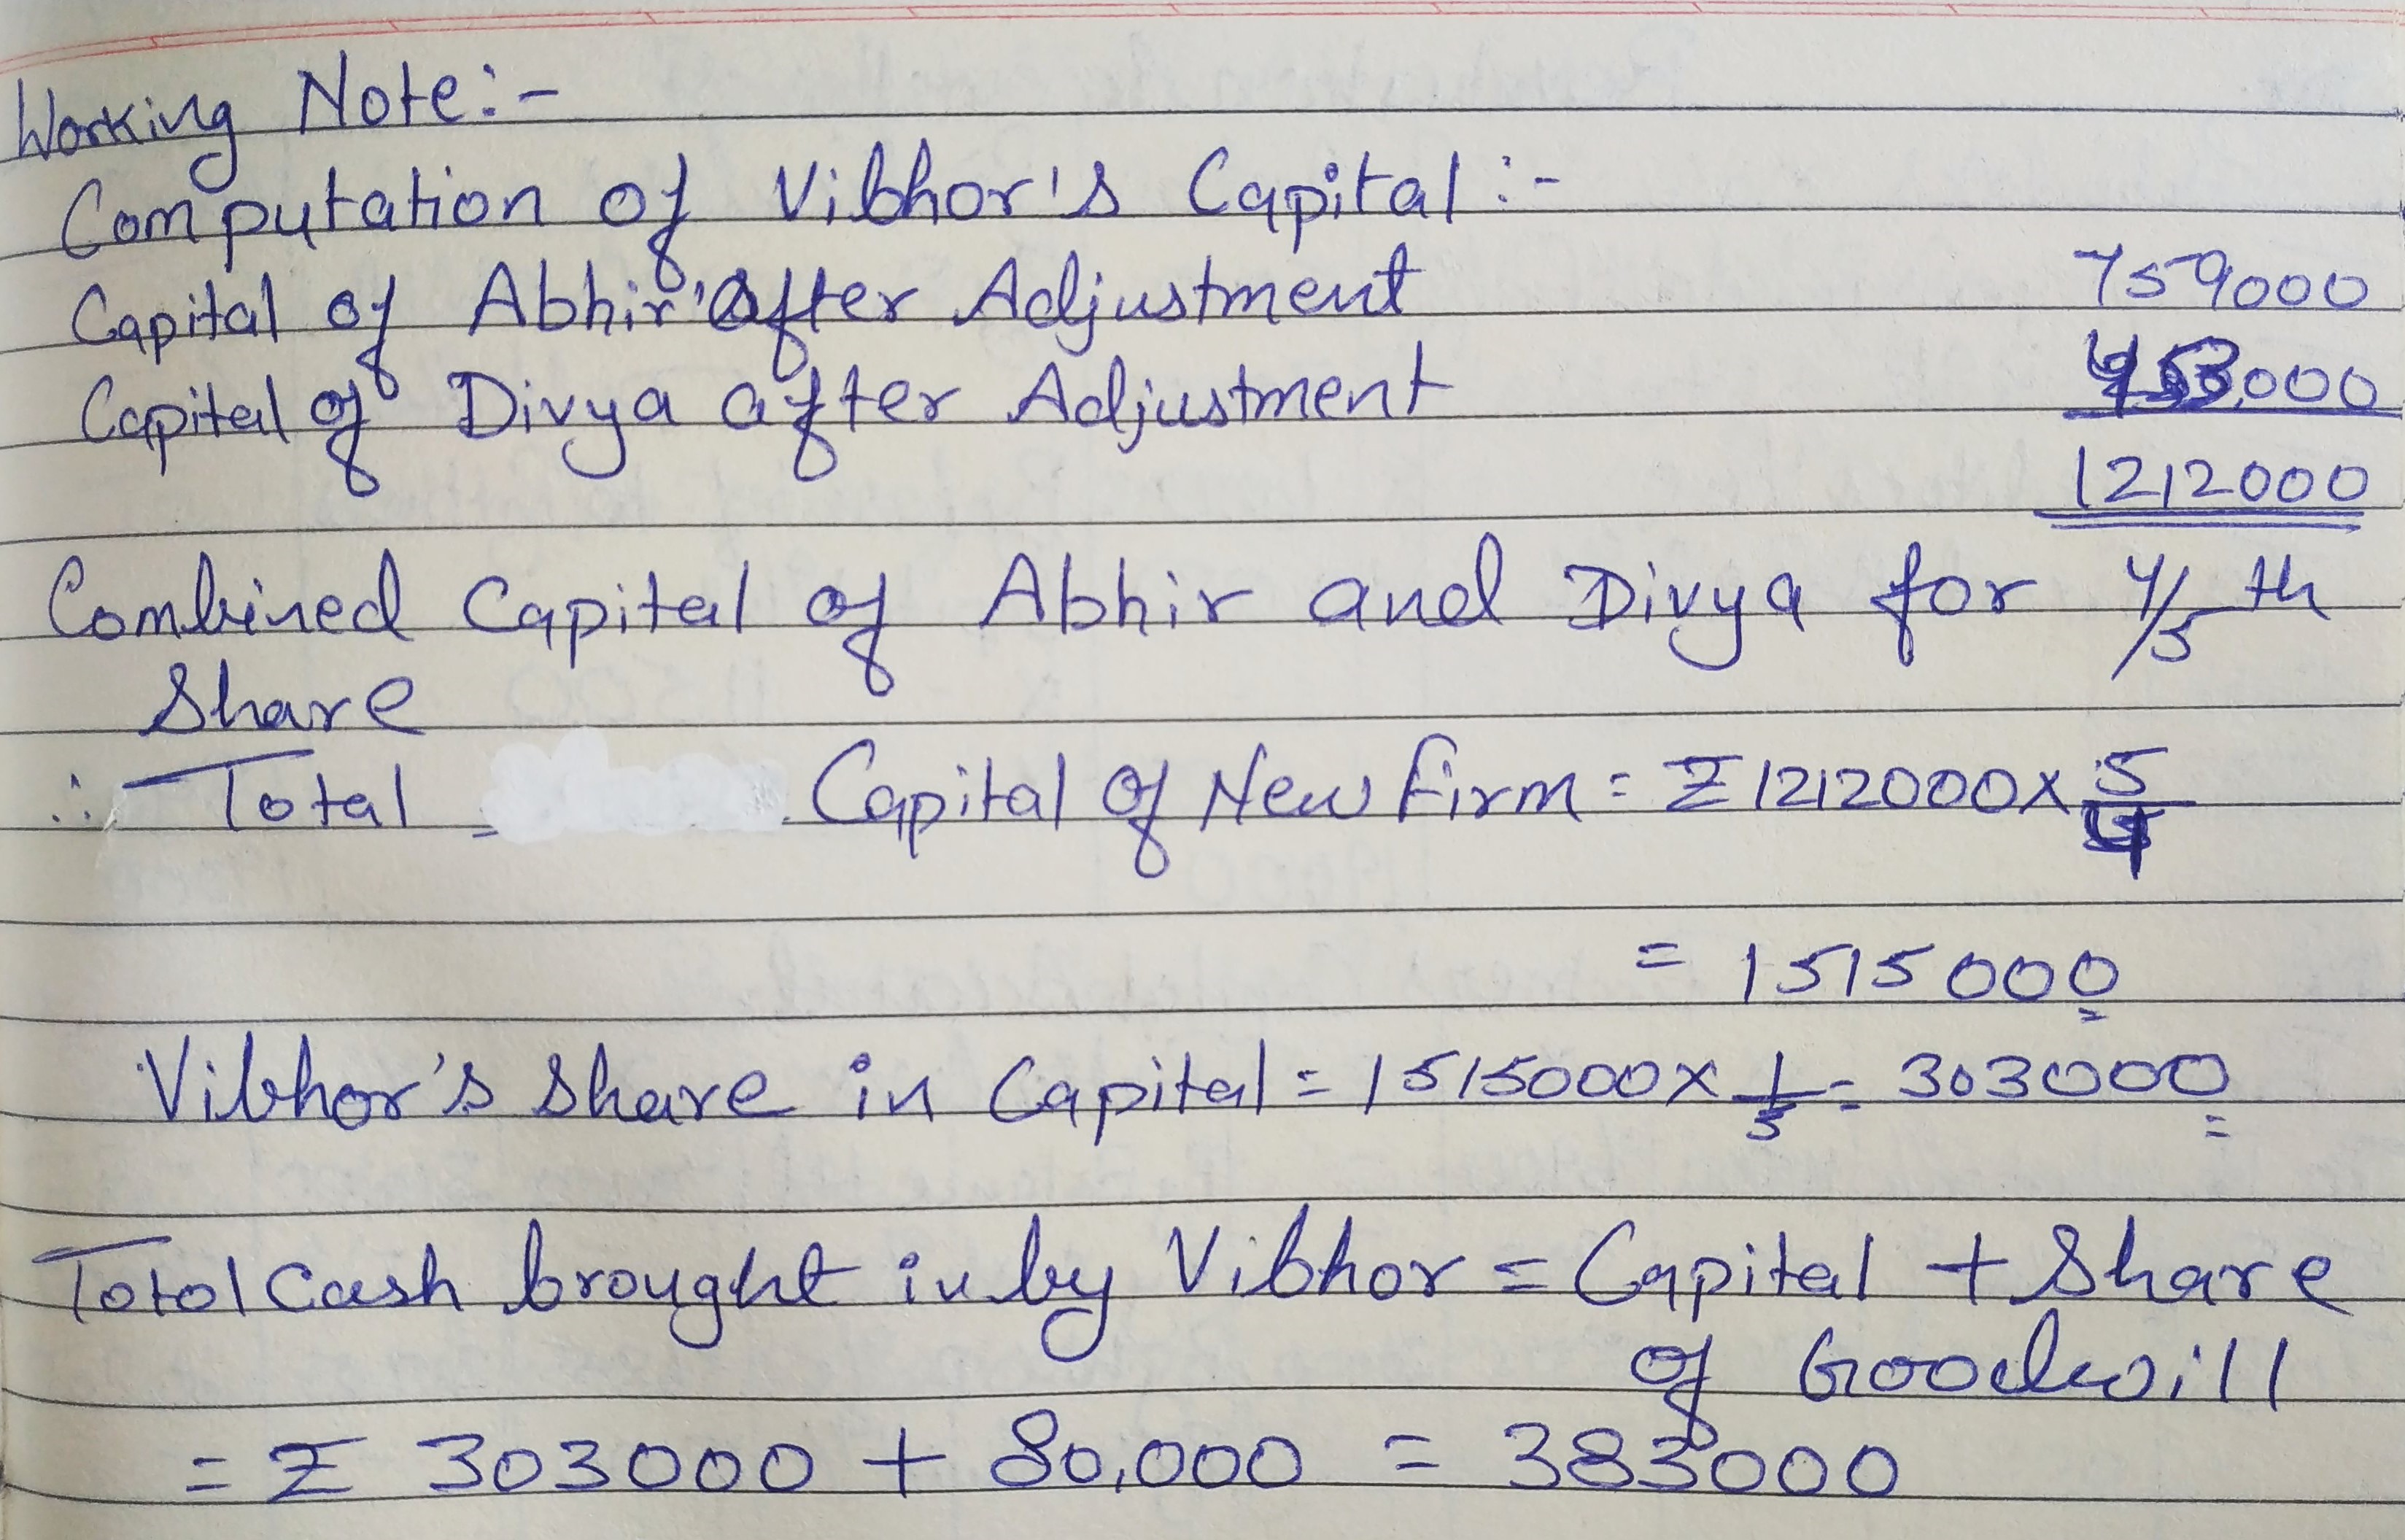 Working Note:-
Computation of Vibhor's Capital:-
Capital of Abhir after Adjustment 759000
Capital of Divya after Adjustment 453,000
1212000
Combined Capital of Abhir and Divya for 4/5 th
Share
∴ Total Capital of New Firm = ₹ 1212000 × 5/4
= 1515000
Vibhor's Share in Capital = 1515000 × 1/5 = 303000
Total Cash brought in by Vibhor = Capital + Share
of Goodwill
= ₹ 303000 + 80,000 = 383000